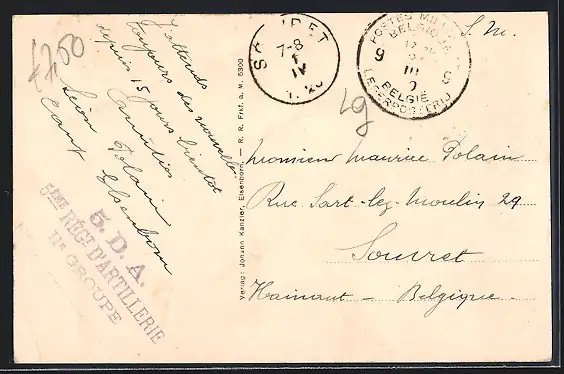 £7.50
J'attends
toujours des nouvelles
depuis 15 jours bientôt
Amitiés
Léon Polain
Camp Elsenborn
5. D. A.
5ÈME RÉGT D'ARTILLERIE
IIe GROUPE
Verlag: Johann Kanzler, Elsenborn. — R. R. Frkf. a. M. 6300
7-8
IV
POSTES MILITAIRES
BELGIQUE
9 9
III
BELGIË
LEGERPOSTERIJ
S. M.
Monsieur Maurice Polain
Rue Sart-lez-Moulin 29
Souvret
Hainaut - Belgique -